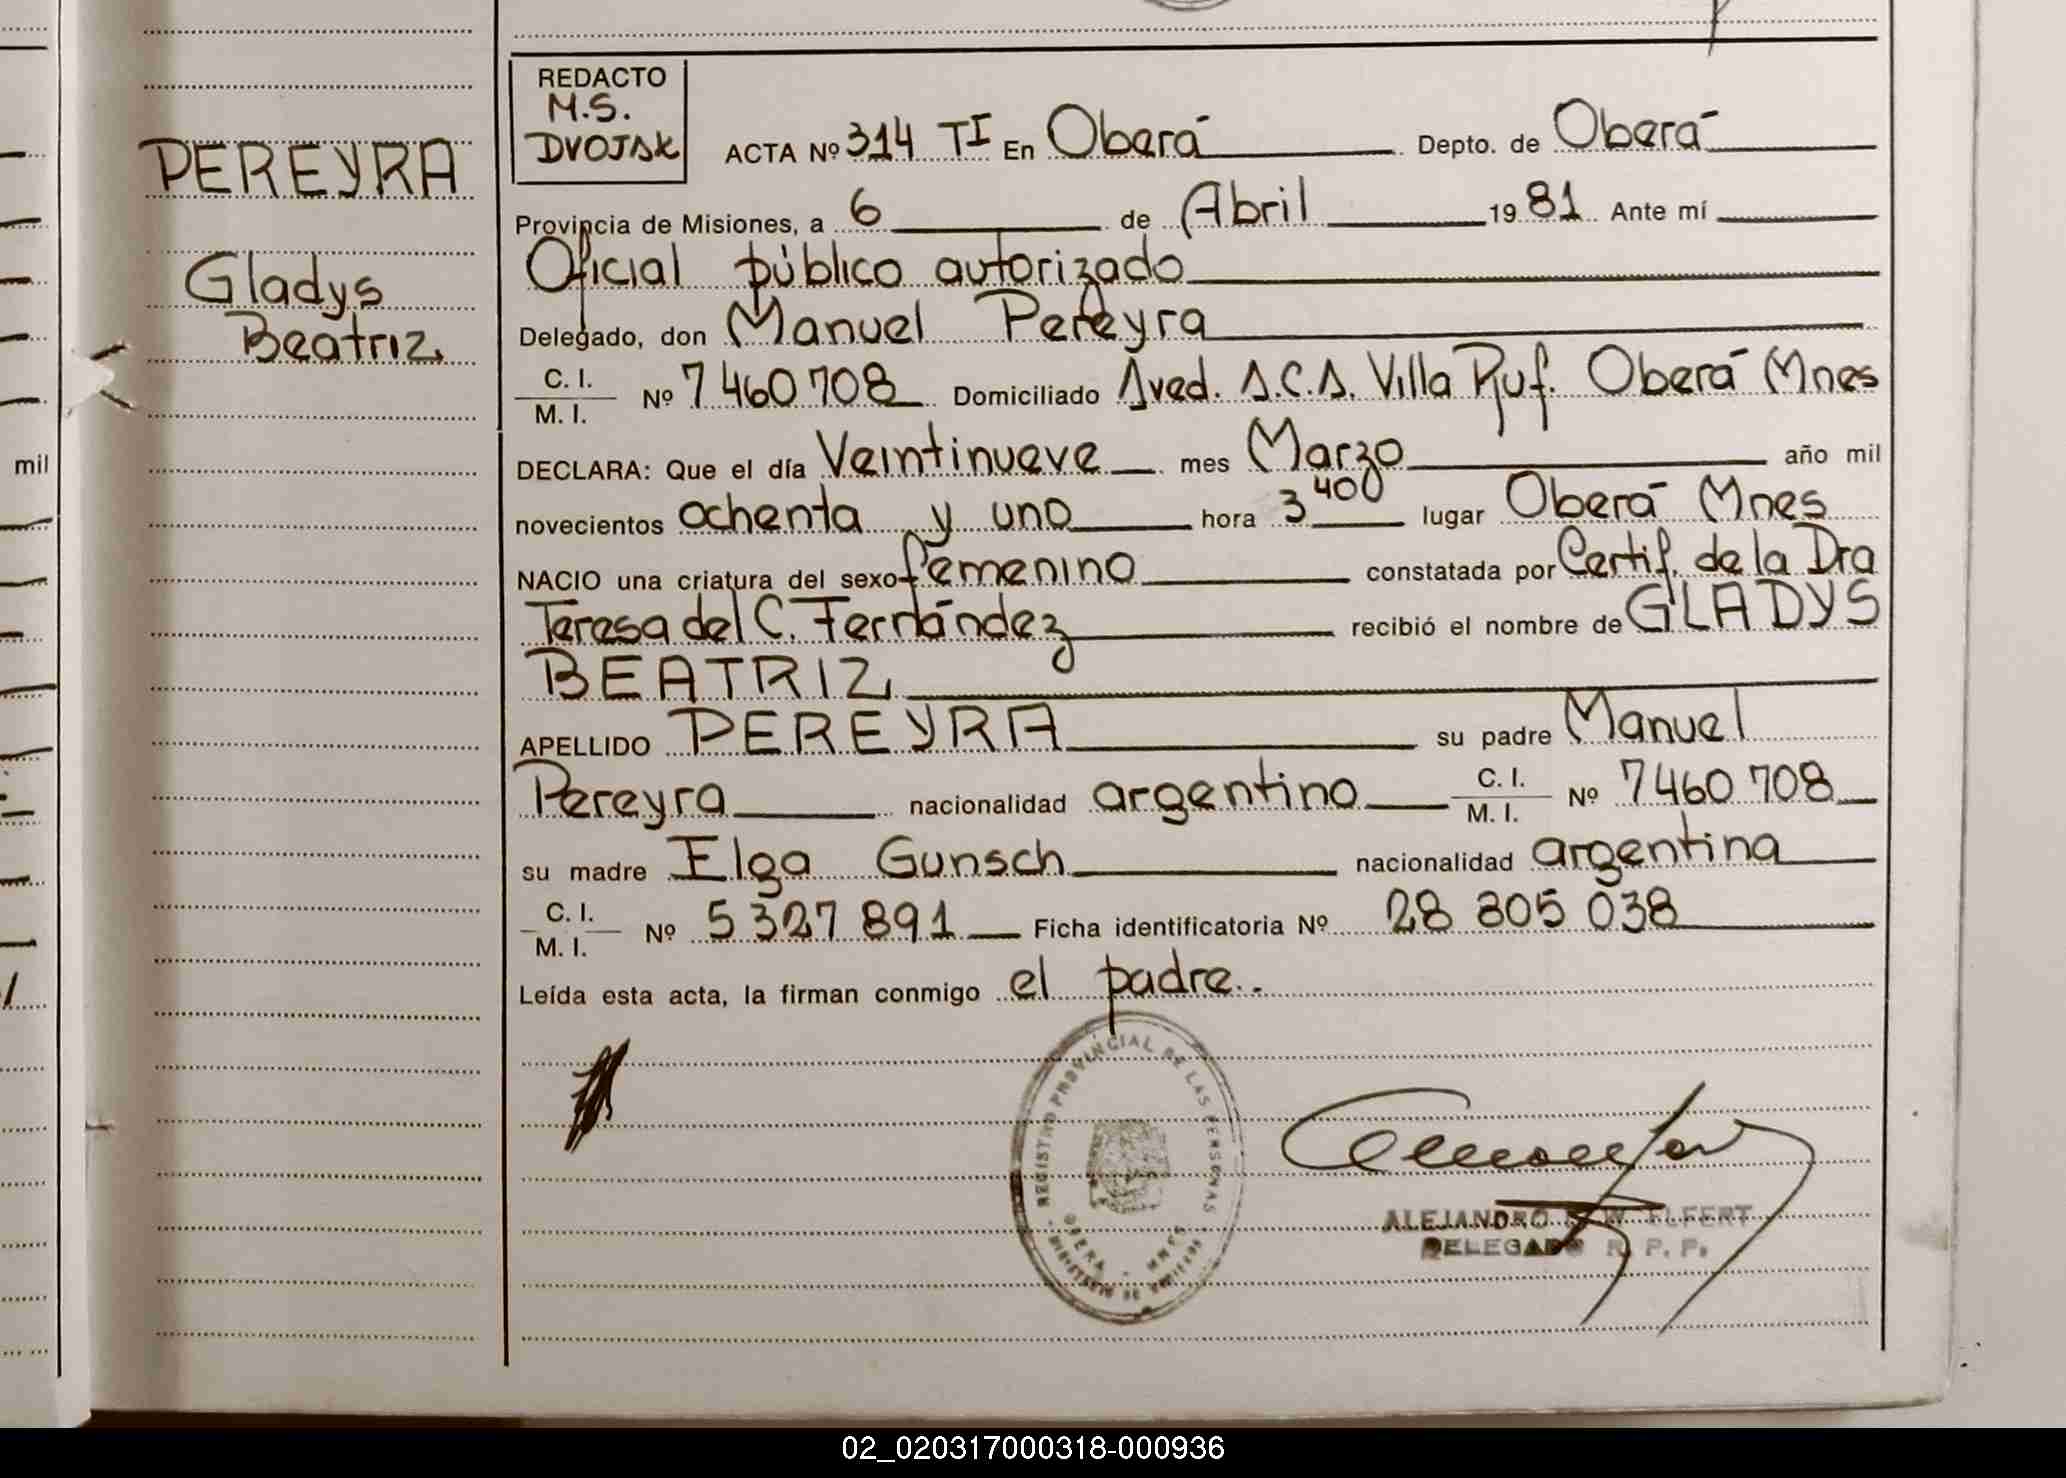 REDACTO
M.S.
DVOJAK
ACTA Nº 314 TI En Oberá Depto. de Oberá
PEREYRA
Provincia de Misiones, a 6 de Abril 1981 Ante mí
Gladys
Oficial público autorizado
Beatriz
Delegado, don Manuel Pereyra
C. I.
M. I. Nº 7 460 708 Domiciliado Aved. A.C.A. Villa Ruf. Oberá Mnes
mil
DECLARA: Que el día Veintinueve mes Marzo año mil
novecientos ochenta y uno hora 3 400 lugar Oberá Mnes
NACIO una criatura del sexo femenino constatada por Certif. de la Dra
Teresa del C. Fernández recibió el nombre de GLADYS
BEATRIZ
APELLIDO PEREYRA su padre Manuel
Pereyra nacionalidad argentino C. I. M. I. Nº 7460 708
su madre Elga Gunsch nacionalidad argentina
C. I. M. I. Nº 5 327 891 Ficha identificatoria Nº 28 805 038
Leída esta acta, la firman conmigo el padre..
REGISTRO PROVINCIAL DE LAS PERSONAS
OBERA - MNES
MINISTERIO DE
ALEJANDRO W. ELFERT
DELEGADO R. P. P.
02_020317000318-000936